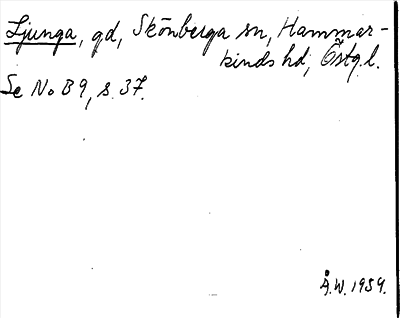 Ljunga, gd, Skönberga sn, Hammar-
kinds hd, Östg.l.
Se No B9, s. 37.
Å.W. 1959.